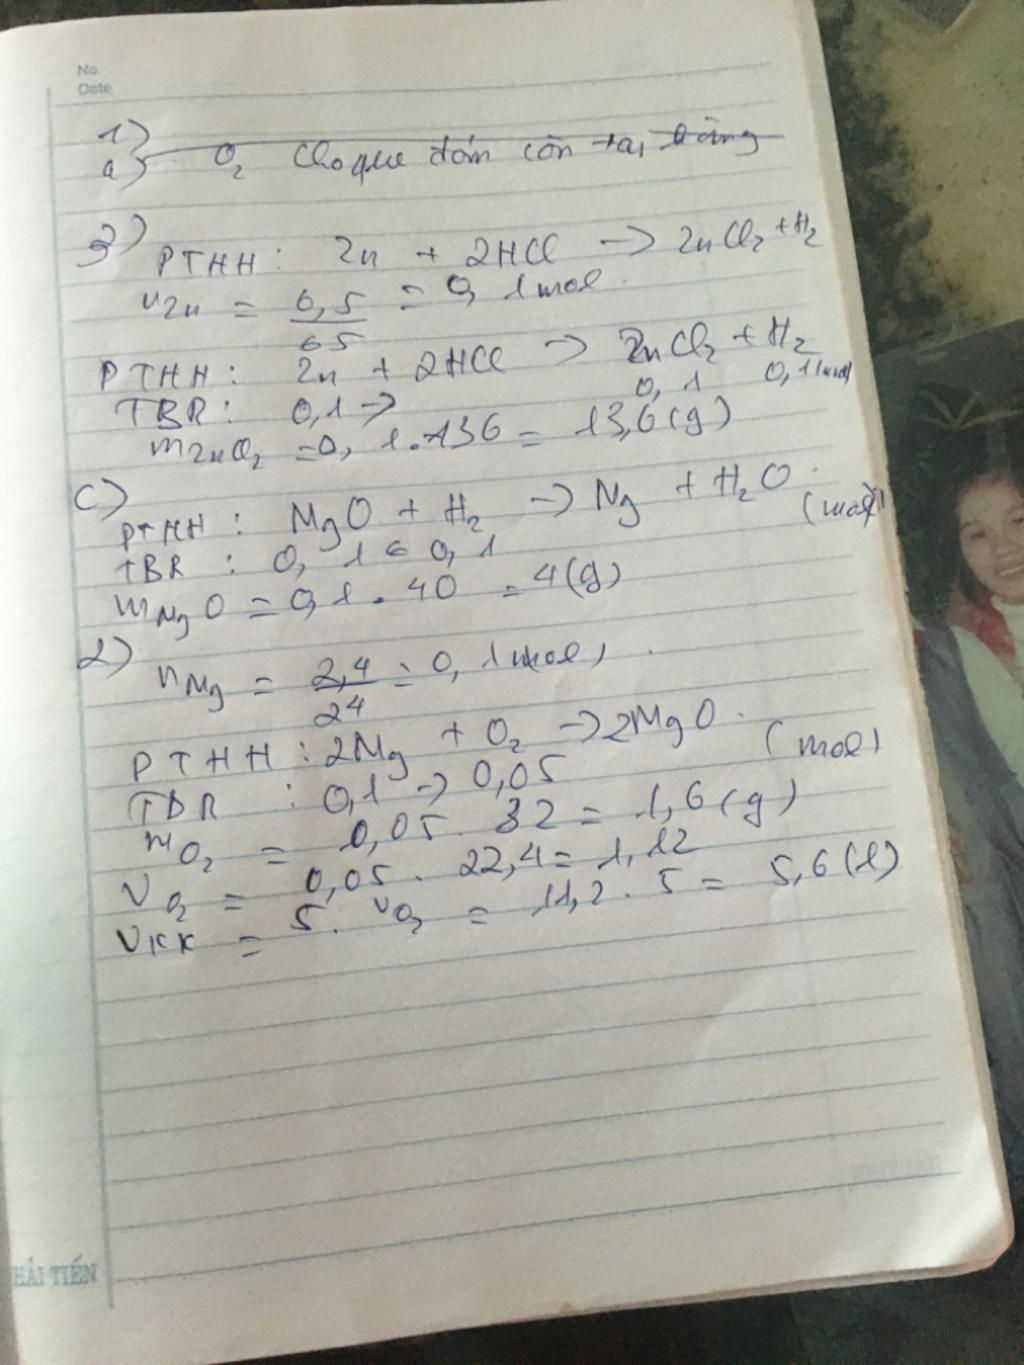 No.
Date
1)
a) O₂ Cho que đóm còn tàn
3) PTHH: Zn + 2HCl -> ZnCl₂ + H₂
nZn = 6,5/65 = 0,1 mol.
PTHH: Zn + 2HCl -> ZnCl₂ + H₂
TBR: 0,1 -> 0,1 0,1 (mol)
mZnCl₂ = 0,1.136 = 13,6(g)
c)
PTHH: MgO + H₂ -> Mg + H₂O.
TBR: 0,1 ← 0,1 (mol)
mMgO = 0,1.40 = 4(g)
d) nMg = 2,4/24 = 0,1 mol)
PTHH: 2Mg + O₂ -> 2MgO.
TBR: 0,1 -> 0,05 (mol)
mO₂ = 0,05.32 = 1,6(g)
VO₂ = 0,05.22,4 = 1,12
VKK = 5.VO₂ = 11,2.5 = 5,6(l)
HẢI TIẾN